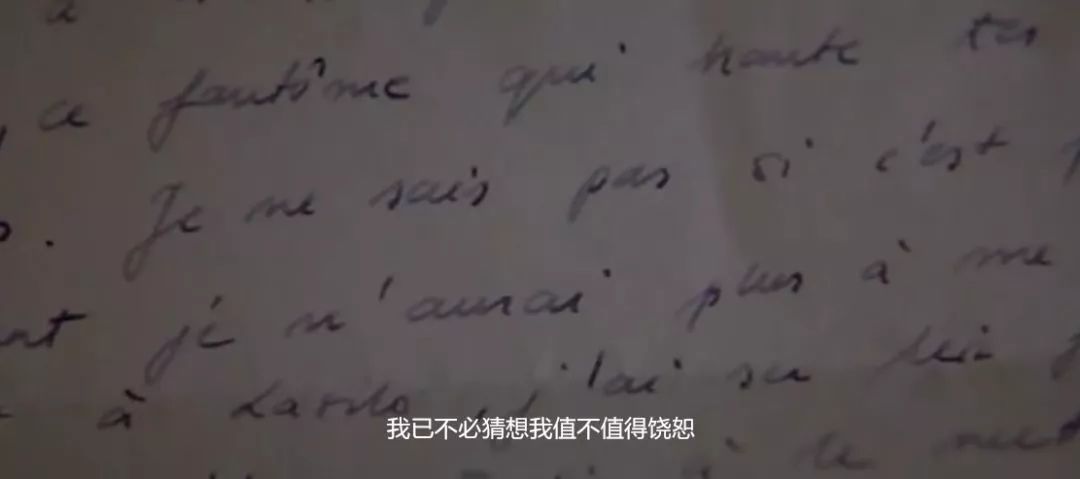 ce fantôme qui hante tes
. Je ne sais pas si c'est
je n'aurai plus à me
à j'ai su
我已不必猜想我值不值得饶恕
à te